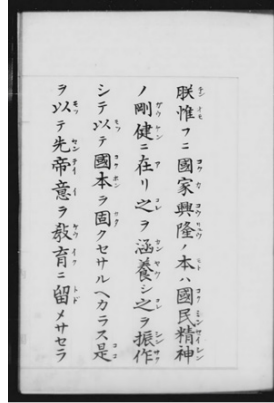 朕惟フニ國家興隆ノ本ハ國民精神
ノ剛健ニ在リ之ヲ涵養シ之ヲ振作
シテ以テ國本ヲ固クセサルヘカラス是
ヲ以テ先帝意ヲ教育ニ留メサセラ